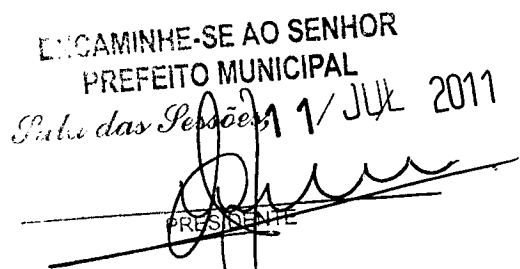 ENCAMINHE-SE AO SENHOR
PREFEITO MUNICIPAL
Sala das Sessões, 11/ JUL 2011
PRESIDENTE